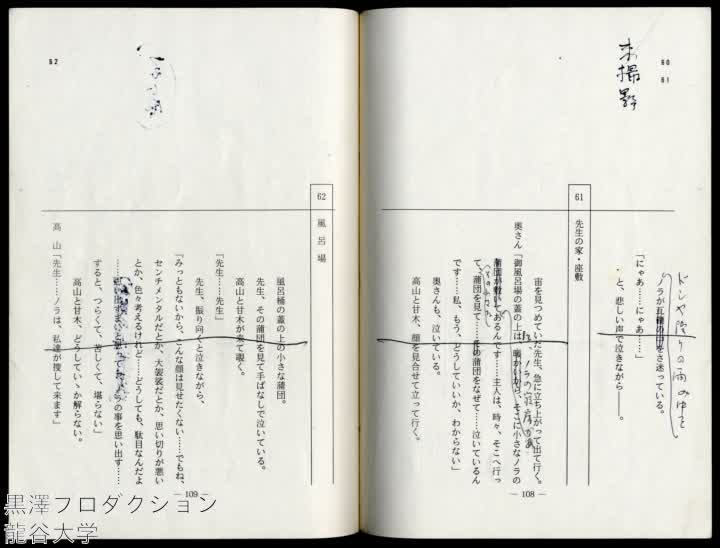 60
61
未撮影
「にゃあ……にゃあ……」
ノラが瓦礫の中をさ迷っている。
と、悲しい声で泣きながら――。
61
先生の家・座敷
宙を見つめていた先生、急に立ち上がって出て行く。
奥さん「御風呂場の蓋の上は、暖かいから、そこに小さなノラの
蒲団が敷いてあるんです……主人は、時々、そこへ行っ
て、蒲団を見て……その蒲団をなぜて……泣いているん
です……私、もう、どうしていいか、わからない」
奥さんも、泣いている。
高山と甘木、顔を見合せて立って行く。
― 108 ―
62
62
風呂場
風呂桶の蓋の上の小さな蒲団。
先生、その蒲団を見て手ばなしで泣いている。
高山と甘木が来て覗く。
「先生……先生」
先生、振り向くと泣きながら、
「みっともないから、こんな顔は見せたくない……でもね、
センチメンタルだとか、大袈裟だとか、思い切りが悪い
とか、色々考えるけれど……どうしても、駄目なんだよ
……思い出すまいと思っても、ノラの事を思い出す……
すると、つらくて、苦しくて、堪らない」
高山と甘木、どうしていゝか解らない。
高 山「先生……ノラは、私達が捜して来ます」
― 109 ―
黒澤プロダクション
龍谷大学